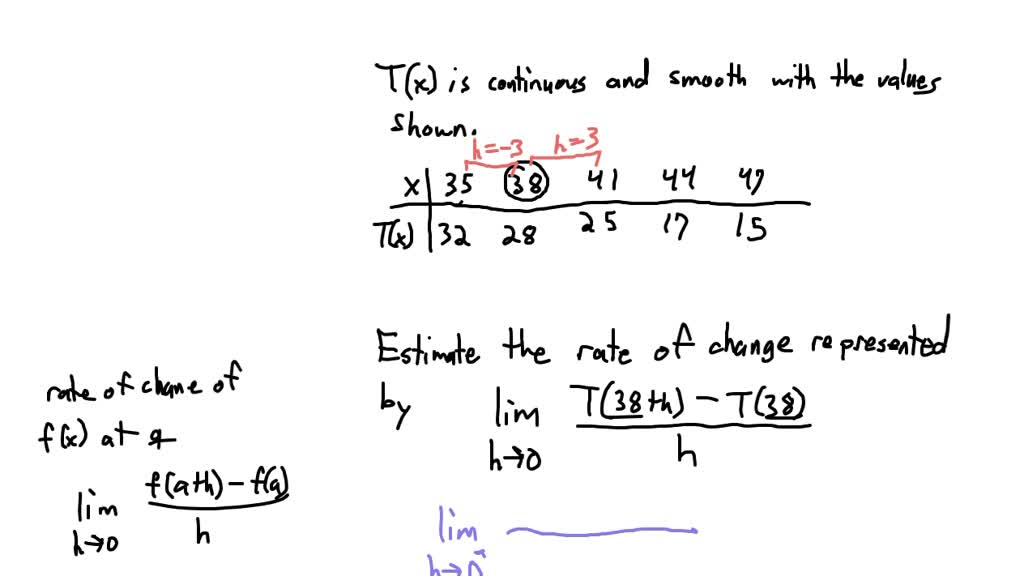 T(x) is continuous and smooth with the values
shown.
h=-3 h=3
x 35 38 41 44 47
T(x) 32 28 25 17 15
Estimate the rate of change represented
by lim h→0 T(38+h) - T(38) / h
rate of chane of
f(x) at a
lim h→0 f(a+h) - f(a) / h
lim
h→0⁻